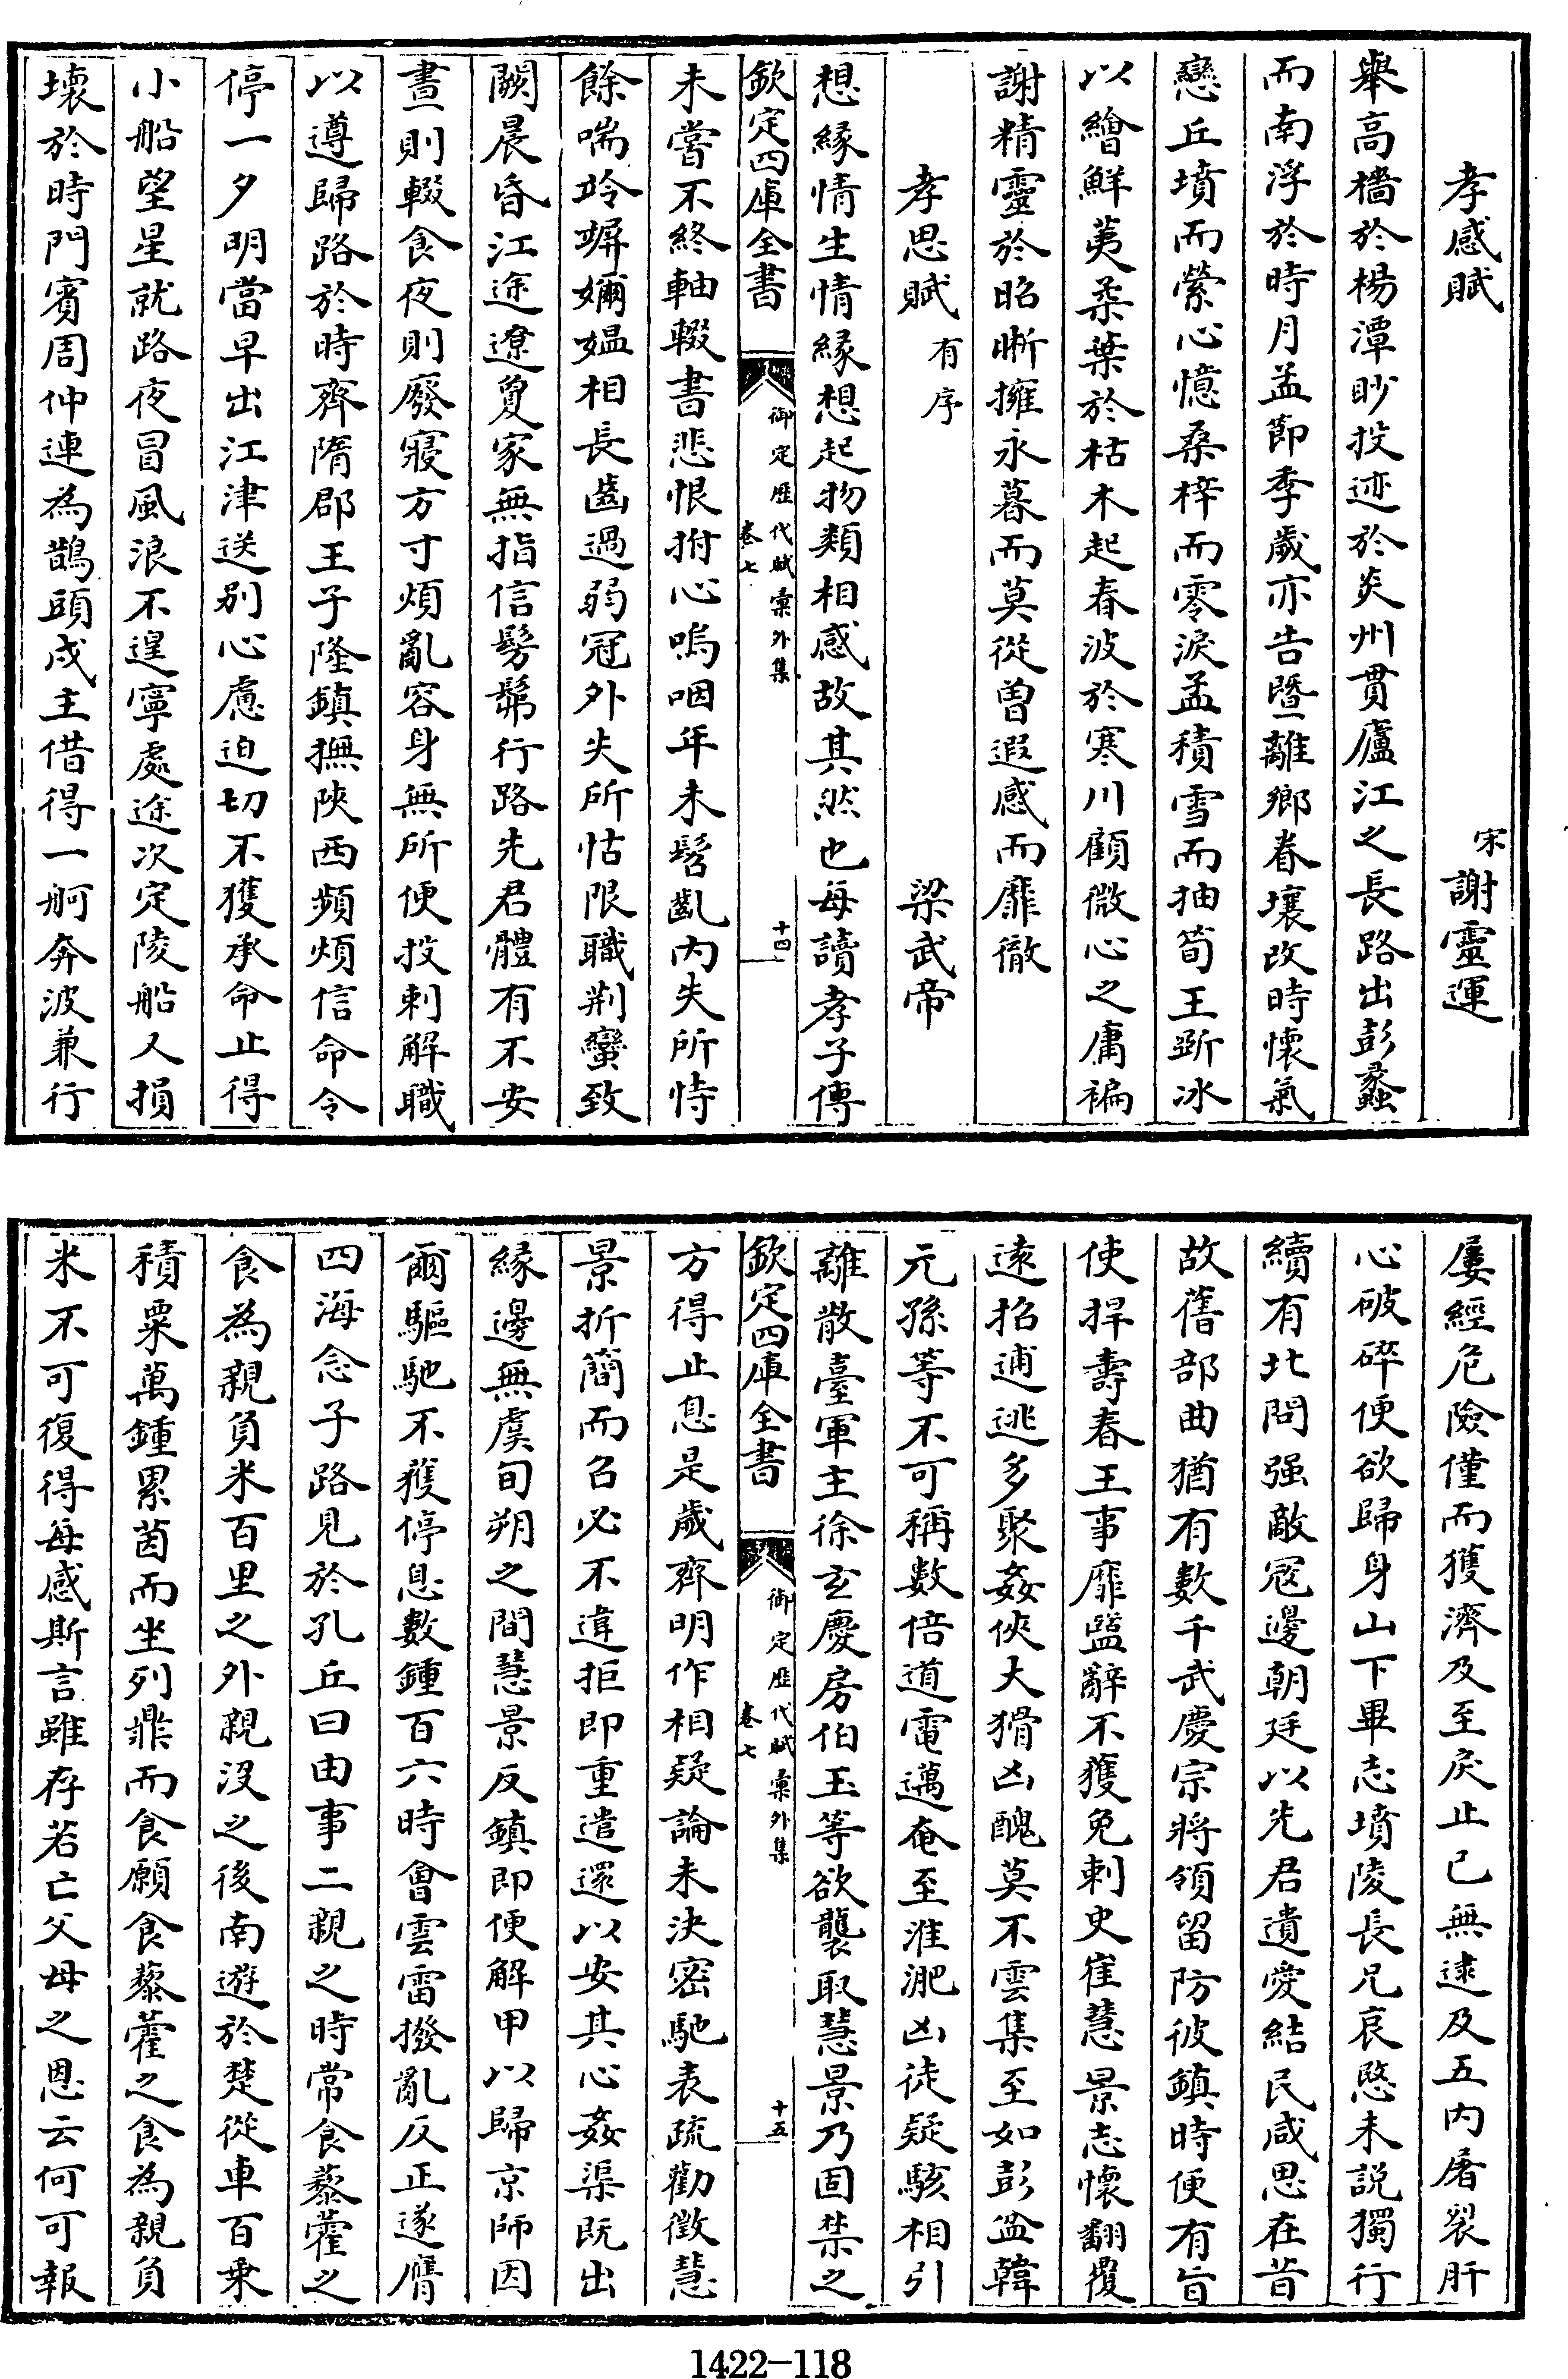 孝感賦 宋謝靈運
舉高檣於楊潭眇投迹於炎州貫廬江之長路出彭蠡
而南浮於時月孟節季歲亦告暨離鄉眷壤改時懷氣
戀丘墳而縈心憶桑梓而零淚孟積雪而抽筍王斲冰
以繪鮮荑柔葉於枯木起春波於寒川顧微心之庸褊
謝精靈於昭晣擁永暮而莫從曾遐感而靡徹
孝思賦有序 梁武帝
想緣情生情緣想起物類相感故其然也每讀孝子傳
欽定四庫全書 御定歷代賦彙外集 卷七 十四
未嘗不終軸輟書悲恨拊心嗚咽年未髫齔內失所恃
餘喘竛竮嬭媪相長齒過弱冠外失所怙限職荆蠻致
闕晨昏江途遼夐家無指信髣髴行路先君體有不安
晝則輟食夜則廢寢方寸煩亂容身無所便投刺解職
以遵歸路於時齊隋郡王子隆鎮撫陝西頻煩信命令
停一夕明當早出江津送別心慮迫切不獲承命止得
小船望星就路夜冒風浪不遑寧處途次定陵船又損
壞於時門賓周仲連為鵲頭戍主借得一舸奔波兼行
屢經危險僅而獲濟及至戾止已無逮及五內屠裂肝
心破碎便欲歸身山下畢志墳陵長兄哀愍未說獨行
續有北問强敵寇邊朝廷以先君遺愛結民咸思在昔
故舊部曲猶有數千武慶宗將領留防彼鎮時便有旨
使捍壽春王事靡盬辭不獲免刺史崔慧景志懷翻覆
遠招逋逃多聚姦俠大猾凶醜莫不雲集至如彭盆韓
元孫等不可稱數倍道電邁奄至淮淝凶徒疑駭相引
離散臺軍主徐玄慶房伯玉等欲襲取慧景乃固禁之
欽定四庫全書 御定歷代賦彙外集 卷七 十五
方得止息是歲齊明作相疑論未決密馳表疏勸徵慧
景折簡而召必不違拒即重遣還以安其心姦渠既出
緣邊無虞旬朔之間慧景反鎮即便解甲以歸京師因
爾驅馳不獲停息數鍾百六時會雲雷撥亂反正遂膺
四海念子路見於孔丘曰由事二親之時常食藜藿之
食為親負米百里之外親沒之後南遊於楚從車百乘
積粟萬鍾累茵而坐列鼎而食願食藜藿之食為親負
米不可復得每感斯言雖存若亡父母之恩云何可報
1422—118